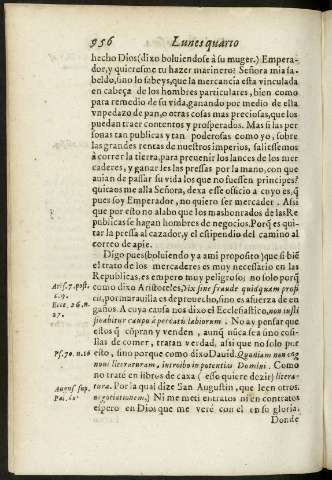 956 Lunes quarto
hecho Dios (dixo boluiendose à su muger.) Empera-
dor, y quieresme tu hazer marinero? Señora mia sa-
beldo, sino lo sabeys, que la mercancia esta vinculada
en cabeça de los hombres particulares, bien como
para remedio de su vida, ganando por medio de ella
vn pedazo de pan, o otras cosas mas preciosas, que los
puedan traer contentos y prosperados. Mas si las per
sonas tan publicas y tan poderosas como yo, sobre
las grandes rentas de nuestros imperios, saliessemos
à correr la tierra, para preuenir los lances de los mer
caderes, y ganarles las pressas por la mano, con que
auian de passar su vida los que no fuessen principes?
quitaos me alla Señora, dexa esse officio a cuyo es, q̃
pues soy Emperador, no quiero ser mercader. Assi
que por esto no alabo que los mas honrados de las Re
publicas se hagan hombres de negocios. Porq̃ es qui-
tar la pressa al cazador, y el estipendio del camino al
correo de apie.
Digo pues (boluiendo y a ami proposito) que si biē
el trato de los mercaderes es muy necessario en las
Republicas, es empero muy peligroso; no solo porq̃
Aris. 7. post. como dixo Aristoteles, Dix sine fraude quidquam prosi
c. 9. cit, por marauilla es de prouecho, sino es a fuerza de en
Eccl. 26. n. gaños. A cuya causa nos dixo el Ecclesiastico, non iusti
27. ficabitur caupo à peccatis labiorum. No ay pensar que
estos q̃ compran y venden, aunq̃ nunca sea sino cos-
tillas de comer, tratan verdad, assi que no solo por
Ps. 70. n. 16 esto, sino porque como dixo Dauid. Quoniam non cog
noui literaturam, introibo in potentias Domini. Como
no traté en libros de caxa (esso quiere dezir) litera-
August. sup. tura. Por la qual dize San Augustin, que leen otros,
Psal. 60 negotiationem,) Ni me meti en tratos ni en contratos
espero en Dios que me veré con el en su gloria.
Donde